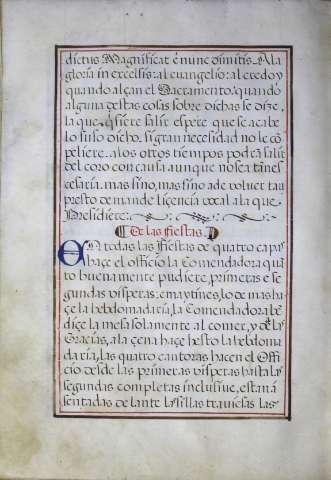 dictus Magnificat ẽ nunc dimitis. Ala
gloria in excelsis: al evangelio: al credo y
quando alçan el Sacramento: quando
alguna destas cosas sobre dichas se dize,
la que q̃siere salir espere que se acabe
lo suso dicho. si gran necesidad no le cõ
peliere. a los otros tiempos podra salir
del coro con causa aunque no sea tãnes
cesaria. mas sino, mas sino a de volver tan
presto demande licencia a la que
Presidiere:
De las fiestas.
En todas las fiestas de quatro capas
haçe el officio la Comendadora quã
to buenamente pudiere, primeras e se
gundas visperas: e maytines, lo de mas ha
çe la hebdomadaria, la Comendadora bẽ
diçe la mesa solamente al comer, y de las
Gracias, a la çena haçe hesto la hebdoma
daria, las quatro cantoras hacen el Offi
cio desde las primeras visperas hasta las
segundas completas inclusiue, estan a
sentadas delante las sillas traviesas las